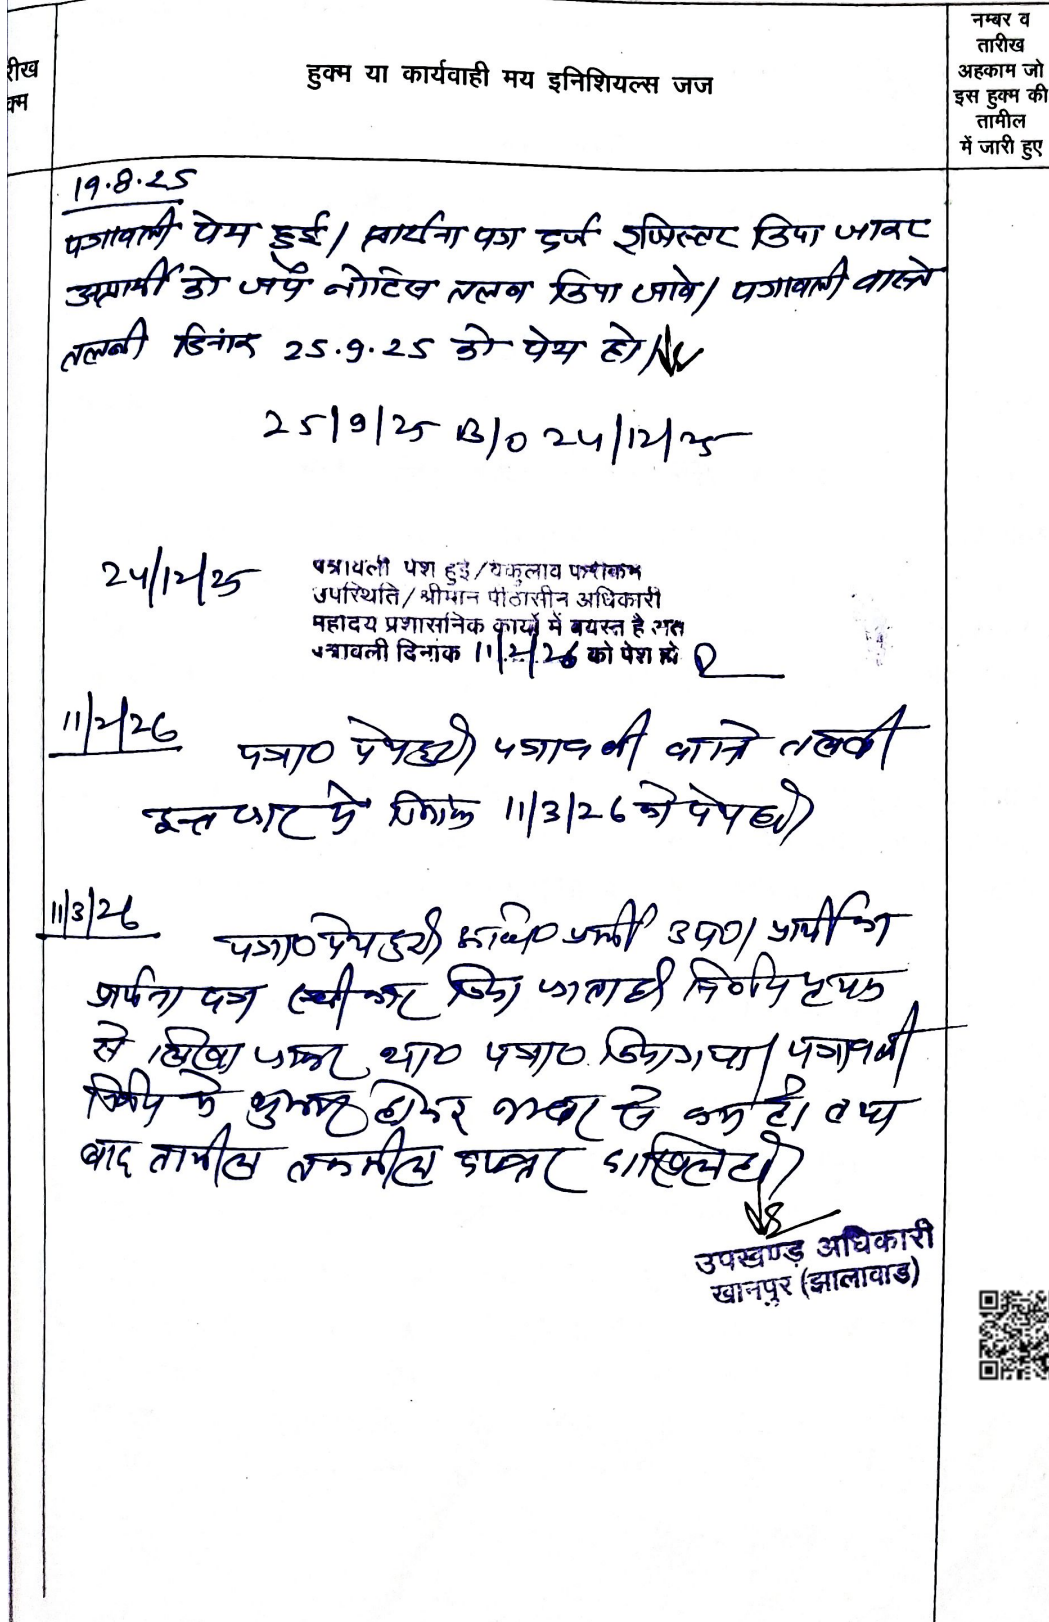 रीख
क्म
हुक्म या कार्यवाही मय इनिशियल्स जज
नम्बर व
तारीख
अहकाम जो
इस हुक्म की
तामील
में जारी हुए
19.8.25
पत्रावली पेश हुई। प्रार्थना पत्र दर्ज रजिस्टर किया जाकर
अप्रार्थी को जर्ये नोटिस तलब किया जावे। पत्रावली वास्ते
तलबी दिनांक 25.9.25 को पेश हो।
25/9/25 B/O 24/12/25
24/12/25
पत्रावली पेश हुई/वकुलाव फरीकन
उपस्थिति/श्रीमान पीठासीन अधिकारी
महोदय प्रशासनिक कार्यो में वयस्त है अतः
पत्रावली दिनांक 11/2/26 को पेश हो
11/2/26
पत्रा० पेश हुयी पत्रावली वास्ते तलबी
इन्तजार में दिनांक 11/3/26 को पेश हो
11/3/26
पत्रा० पेश हुयी प्रार्थी उप०। प्रार्थी का
प्रार्थना पत्र स्वीकार किया जाता है। निर्णय पृथक
से लिखा जाकर शा० पत्रा० किया गया। पत्रावली
निर्णय में शुमार होकर नम्बर से कम हो। तथा
बाद तामील तकमील दफ्तर दाखिल हो
उपखण्ड़ अधिकारी
खानपुर (झालावाड)